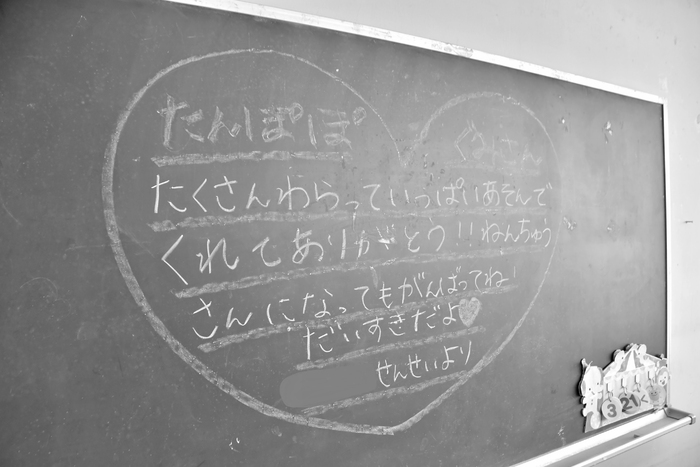 たんぽぽ ぐみさん
たくさんわらっていっぱいあそんで
くれてありがとう!!ねんちゅう
さんになってもがんばってねー!
だいすきだよ♥
せんせいより
3 21